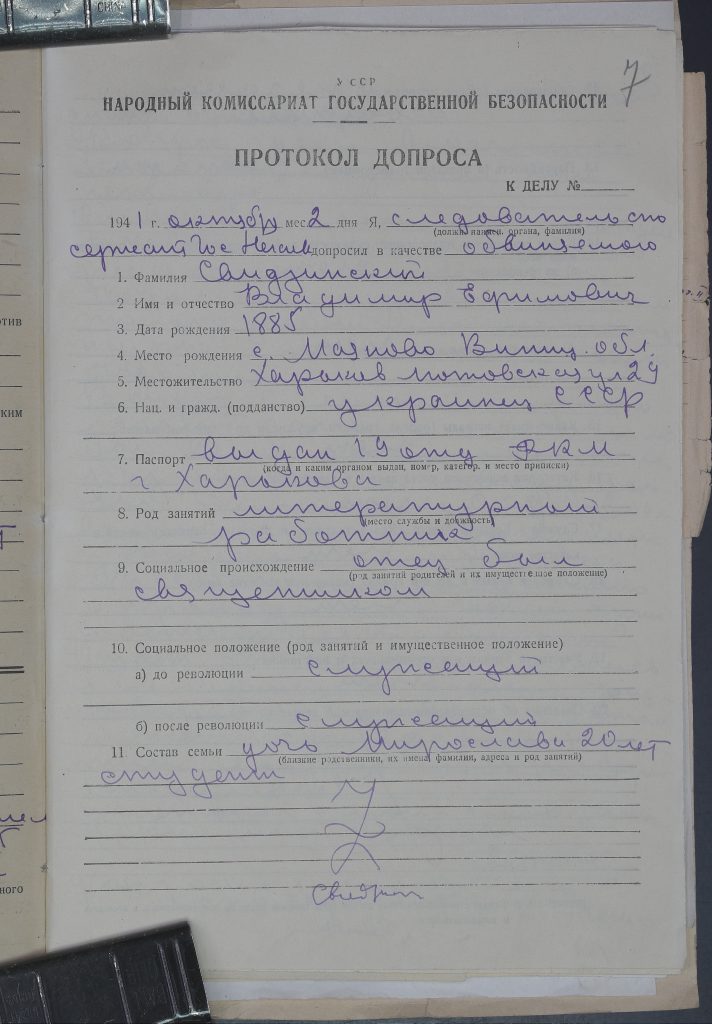 7
УССР
НАРОДНЫЙ КОМИССАРИАТ ГОСУДАРСТВЕННОЙ БЕЗОПАСНОСТИ
ПРОТОКОЛ ДОПРОСА
К ДЕЛУ №
1941 г. октября мес. 2 дня Я, следователь
(должн. наимен. органа, фамилия)
сержант Гос допросил в качестве обвиняемого
1. Фамилия Свидзинский
2 Имя и отчество Владимир Ефимович
3. Дата рождения 1885
4. Место рождения с. Маяново Виниц. обл.
5. Местожительство Харьков ул 29
6. Нац. и гражд. (подданство) украинец СССР
7. Паспорт выдан 19 отд РКМ
(когда и каким органом выдан, номер, категор. и место приписки)
г Харькова
8. Род занятий литературный
(место службы и должность)
работник
9. Социальное происхождение отец был
(род занятий родителей и их имущественное положение)
священником
10. Социальное положение (род занятий и имущественное положение)
а) до революции служащий
б) после революции служащий
11 Состав семьи дочь Мирослава 20 лет
(близкие родственники, их имена, фамилии, адреса и род занятий)
студент